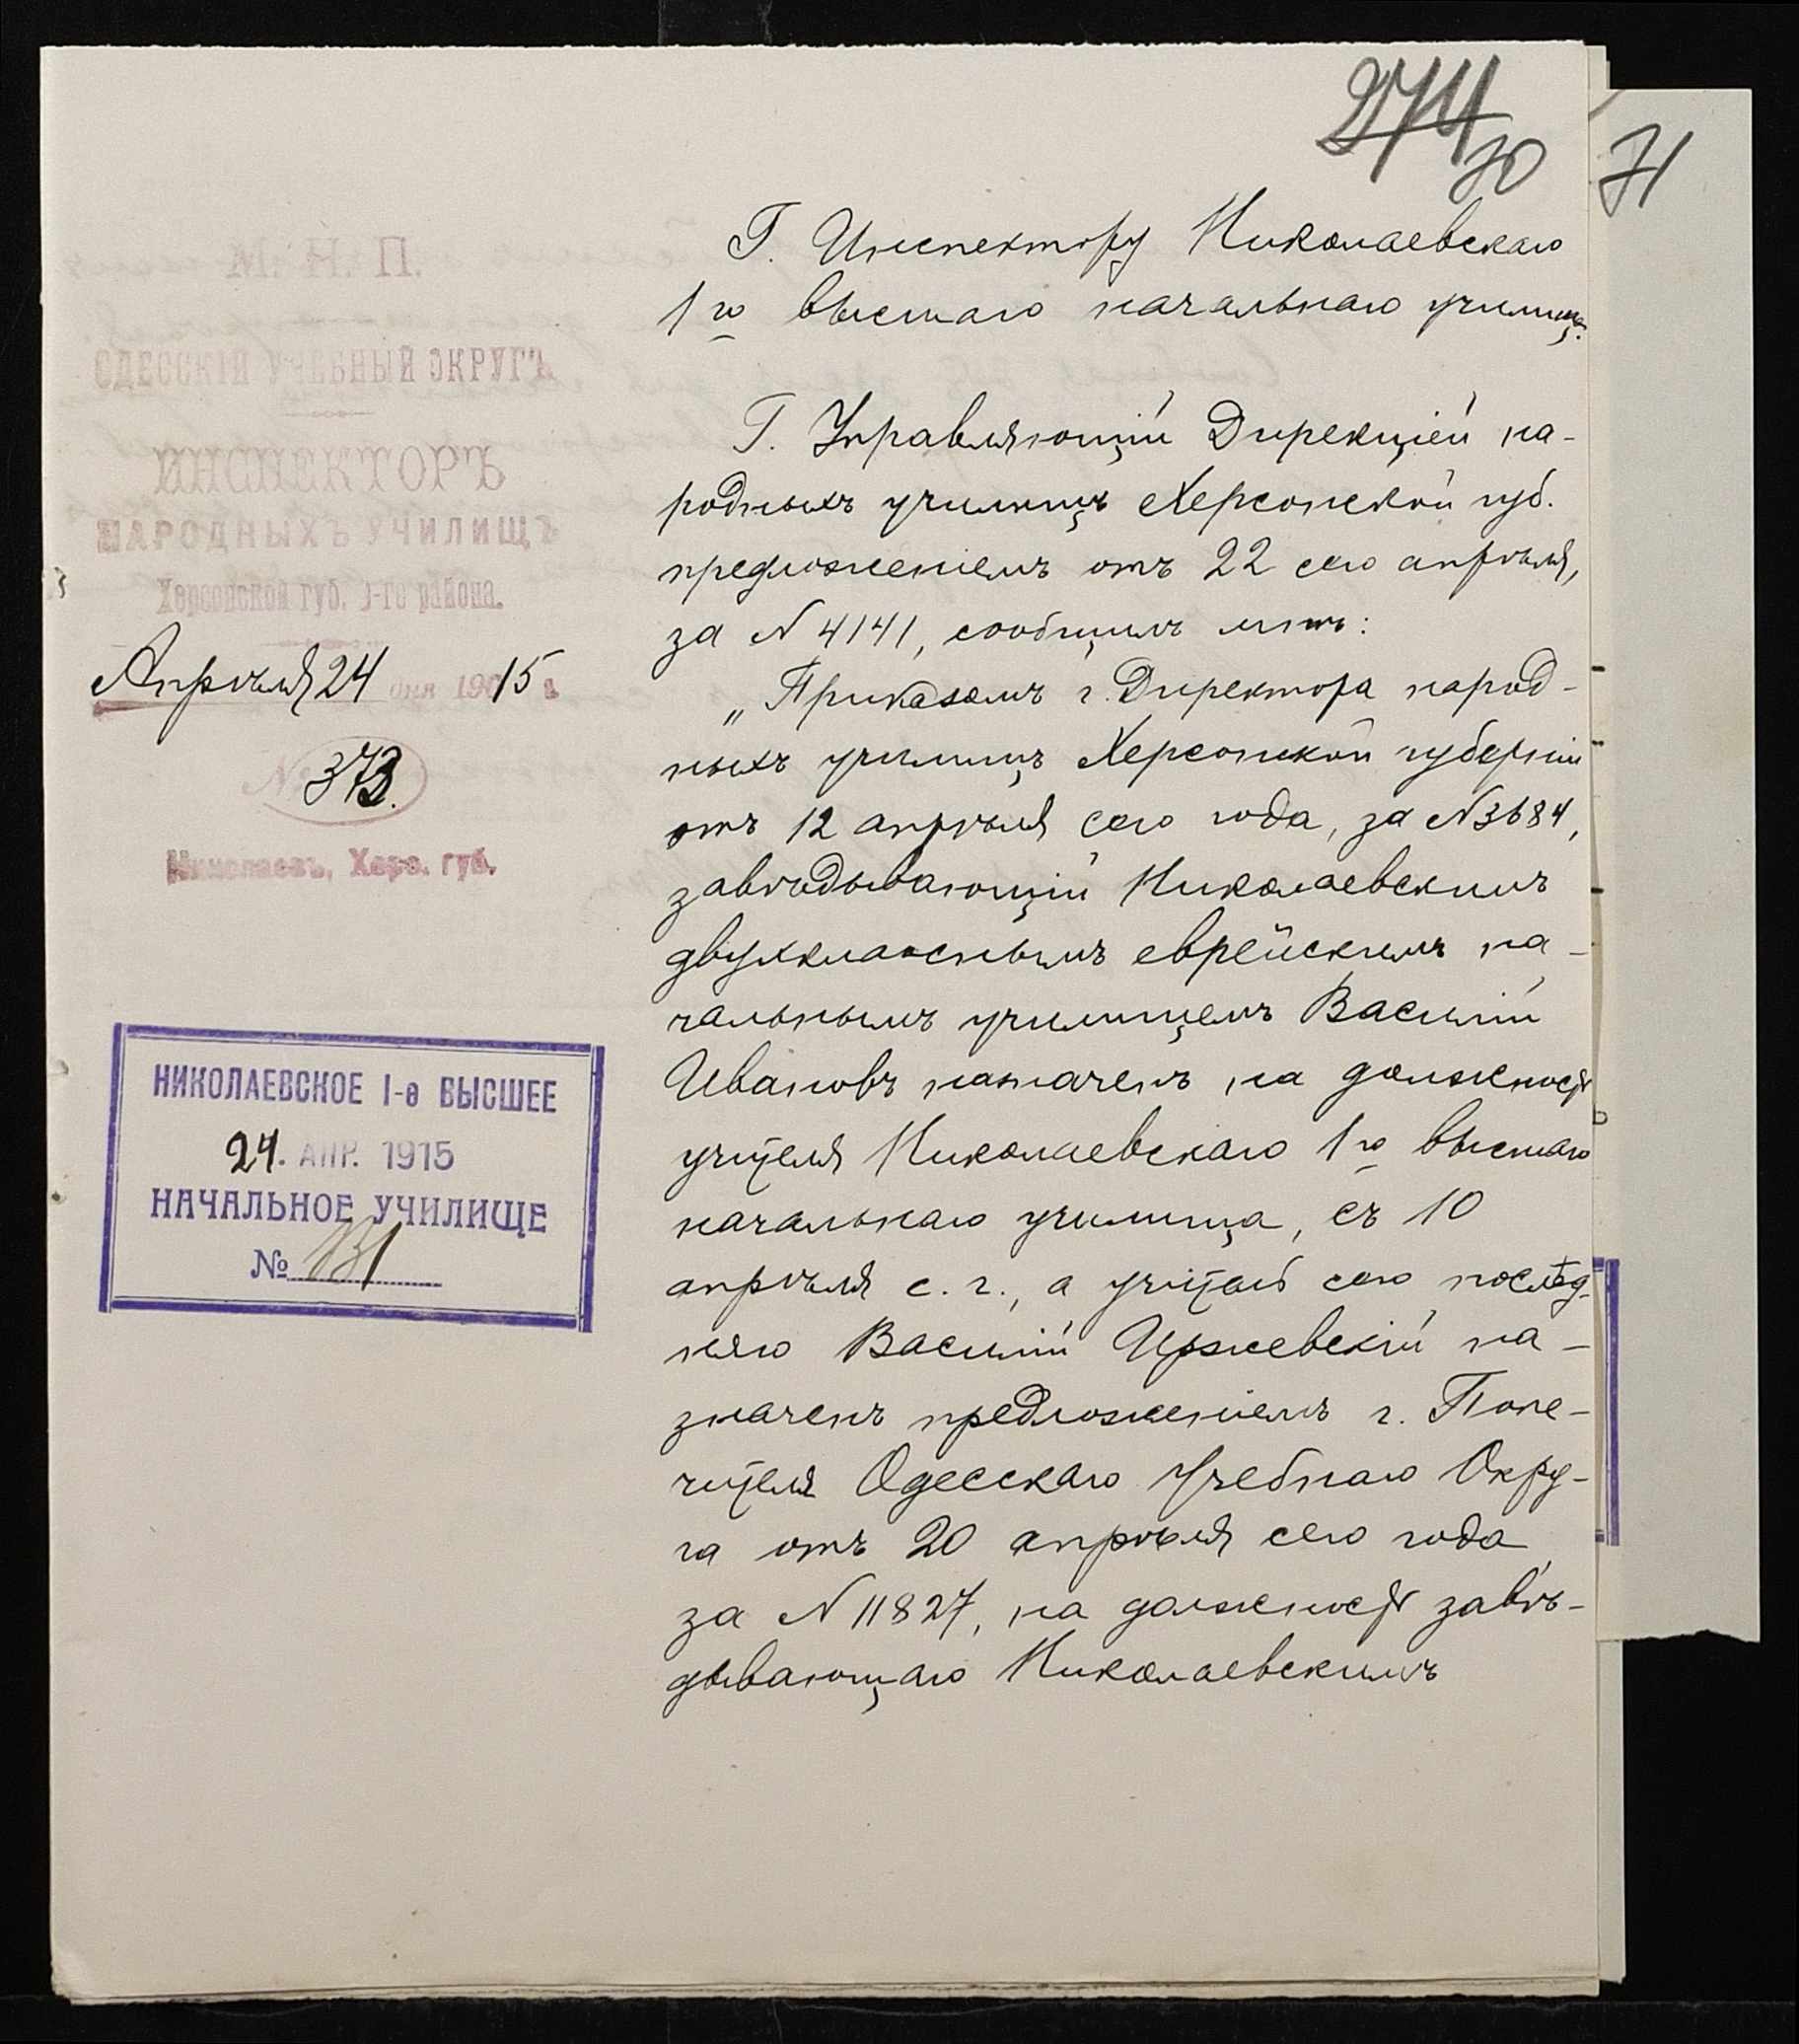 274
30
71
М. Н. П.
ОДЕССКІЙ УЧЕБНЫЙ ОКРУГЪ
ИНСПЕКТОРЪ
НАРОДНЫХЪ УЧИЛИЩЪ
Херсонской губ. района.
Апрѣля 24 дня 1915 г.
№ 373.
Николаевъ, Херс. губ.
НИКОЛАЕВСКОЕ 1-е ВЫСШЕЕ
24. АПР. 1915
НАЧАЛЬНОЕ УЧИЛИЩЕ
№ 131
Г. Инспектору Николаевскаго
1го высшаго начальнаго училищ.
Г. Управляющій Дирекціей на-
родныхъ училищъ Херсонской губ.
предложеніемъ отъ 22 сего апрѣля,
за N 4141, сообщилъ мнѣ:
„Приказомъ г. Директора народ-
ныхъ училищъ Херсонской губерніи
отъ 12 апрѣля сего года, за N 3684,
завѣдывающій Николаевскимъ
двухкласснымъ еврейскимъ на-
чальнымъ училищемъ Василій
Ивановъ назначенъ на должность
учителя Николаевскаго 1го высшаго
начальнаго училища, съ 10
апрѣля с. г., а учитель сего послѣд-
няго Василій Иржевскій на-
значенъ предложеніемъ г. Попе-
чителя Одесскаго Учебнаго Окру-
га отъ 20 апрѣля сего года
за N 11827, на должность завѣ-
дывающаго Николаевскимъ